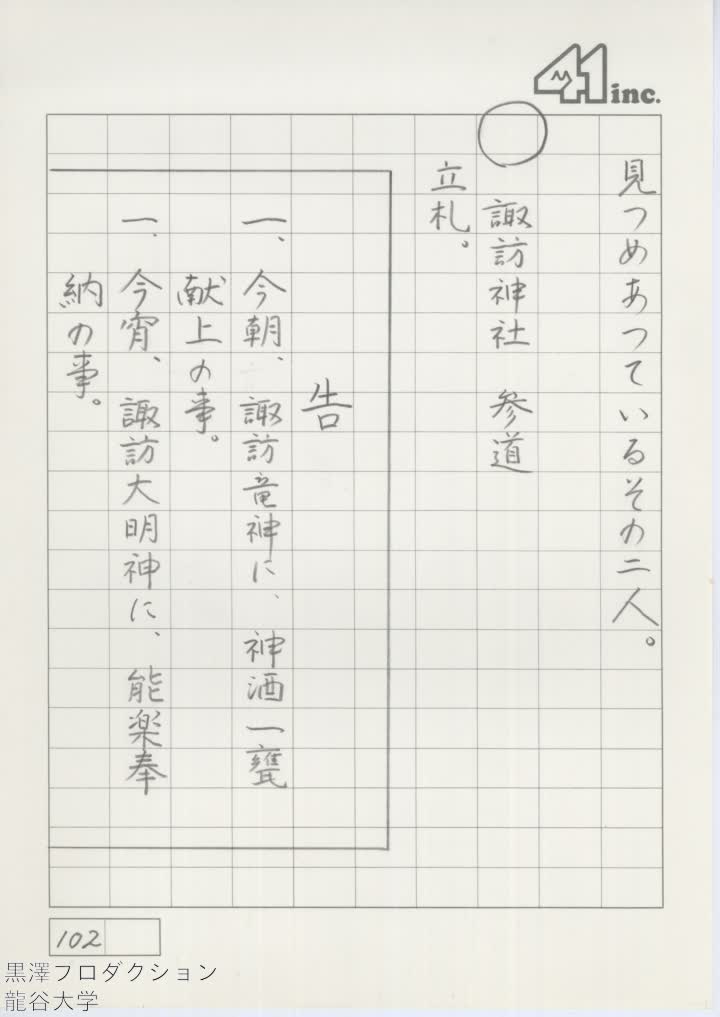 41 inc.
見つめあつているその二人。
○ 諏訪神社 参道
立札。
告
一、今朝、諏訪竜神に、神酒一甕
献上の事。
一、今宵、諏訪大明神に、能楽奉
納の事。
102
黒澤フロダクション
龍谷大学